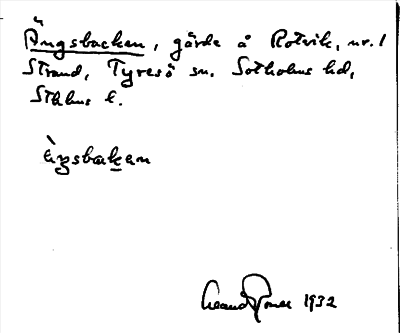 Ängsbacken, gärde å Rotvik, nr. 1
Strand, Tyresö sn. Sotholms hd,
Sthlms l.
ɛ̀ŋsbakən
1932